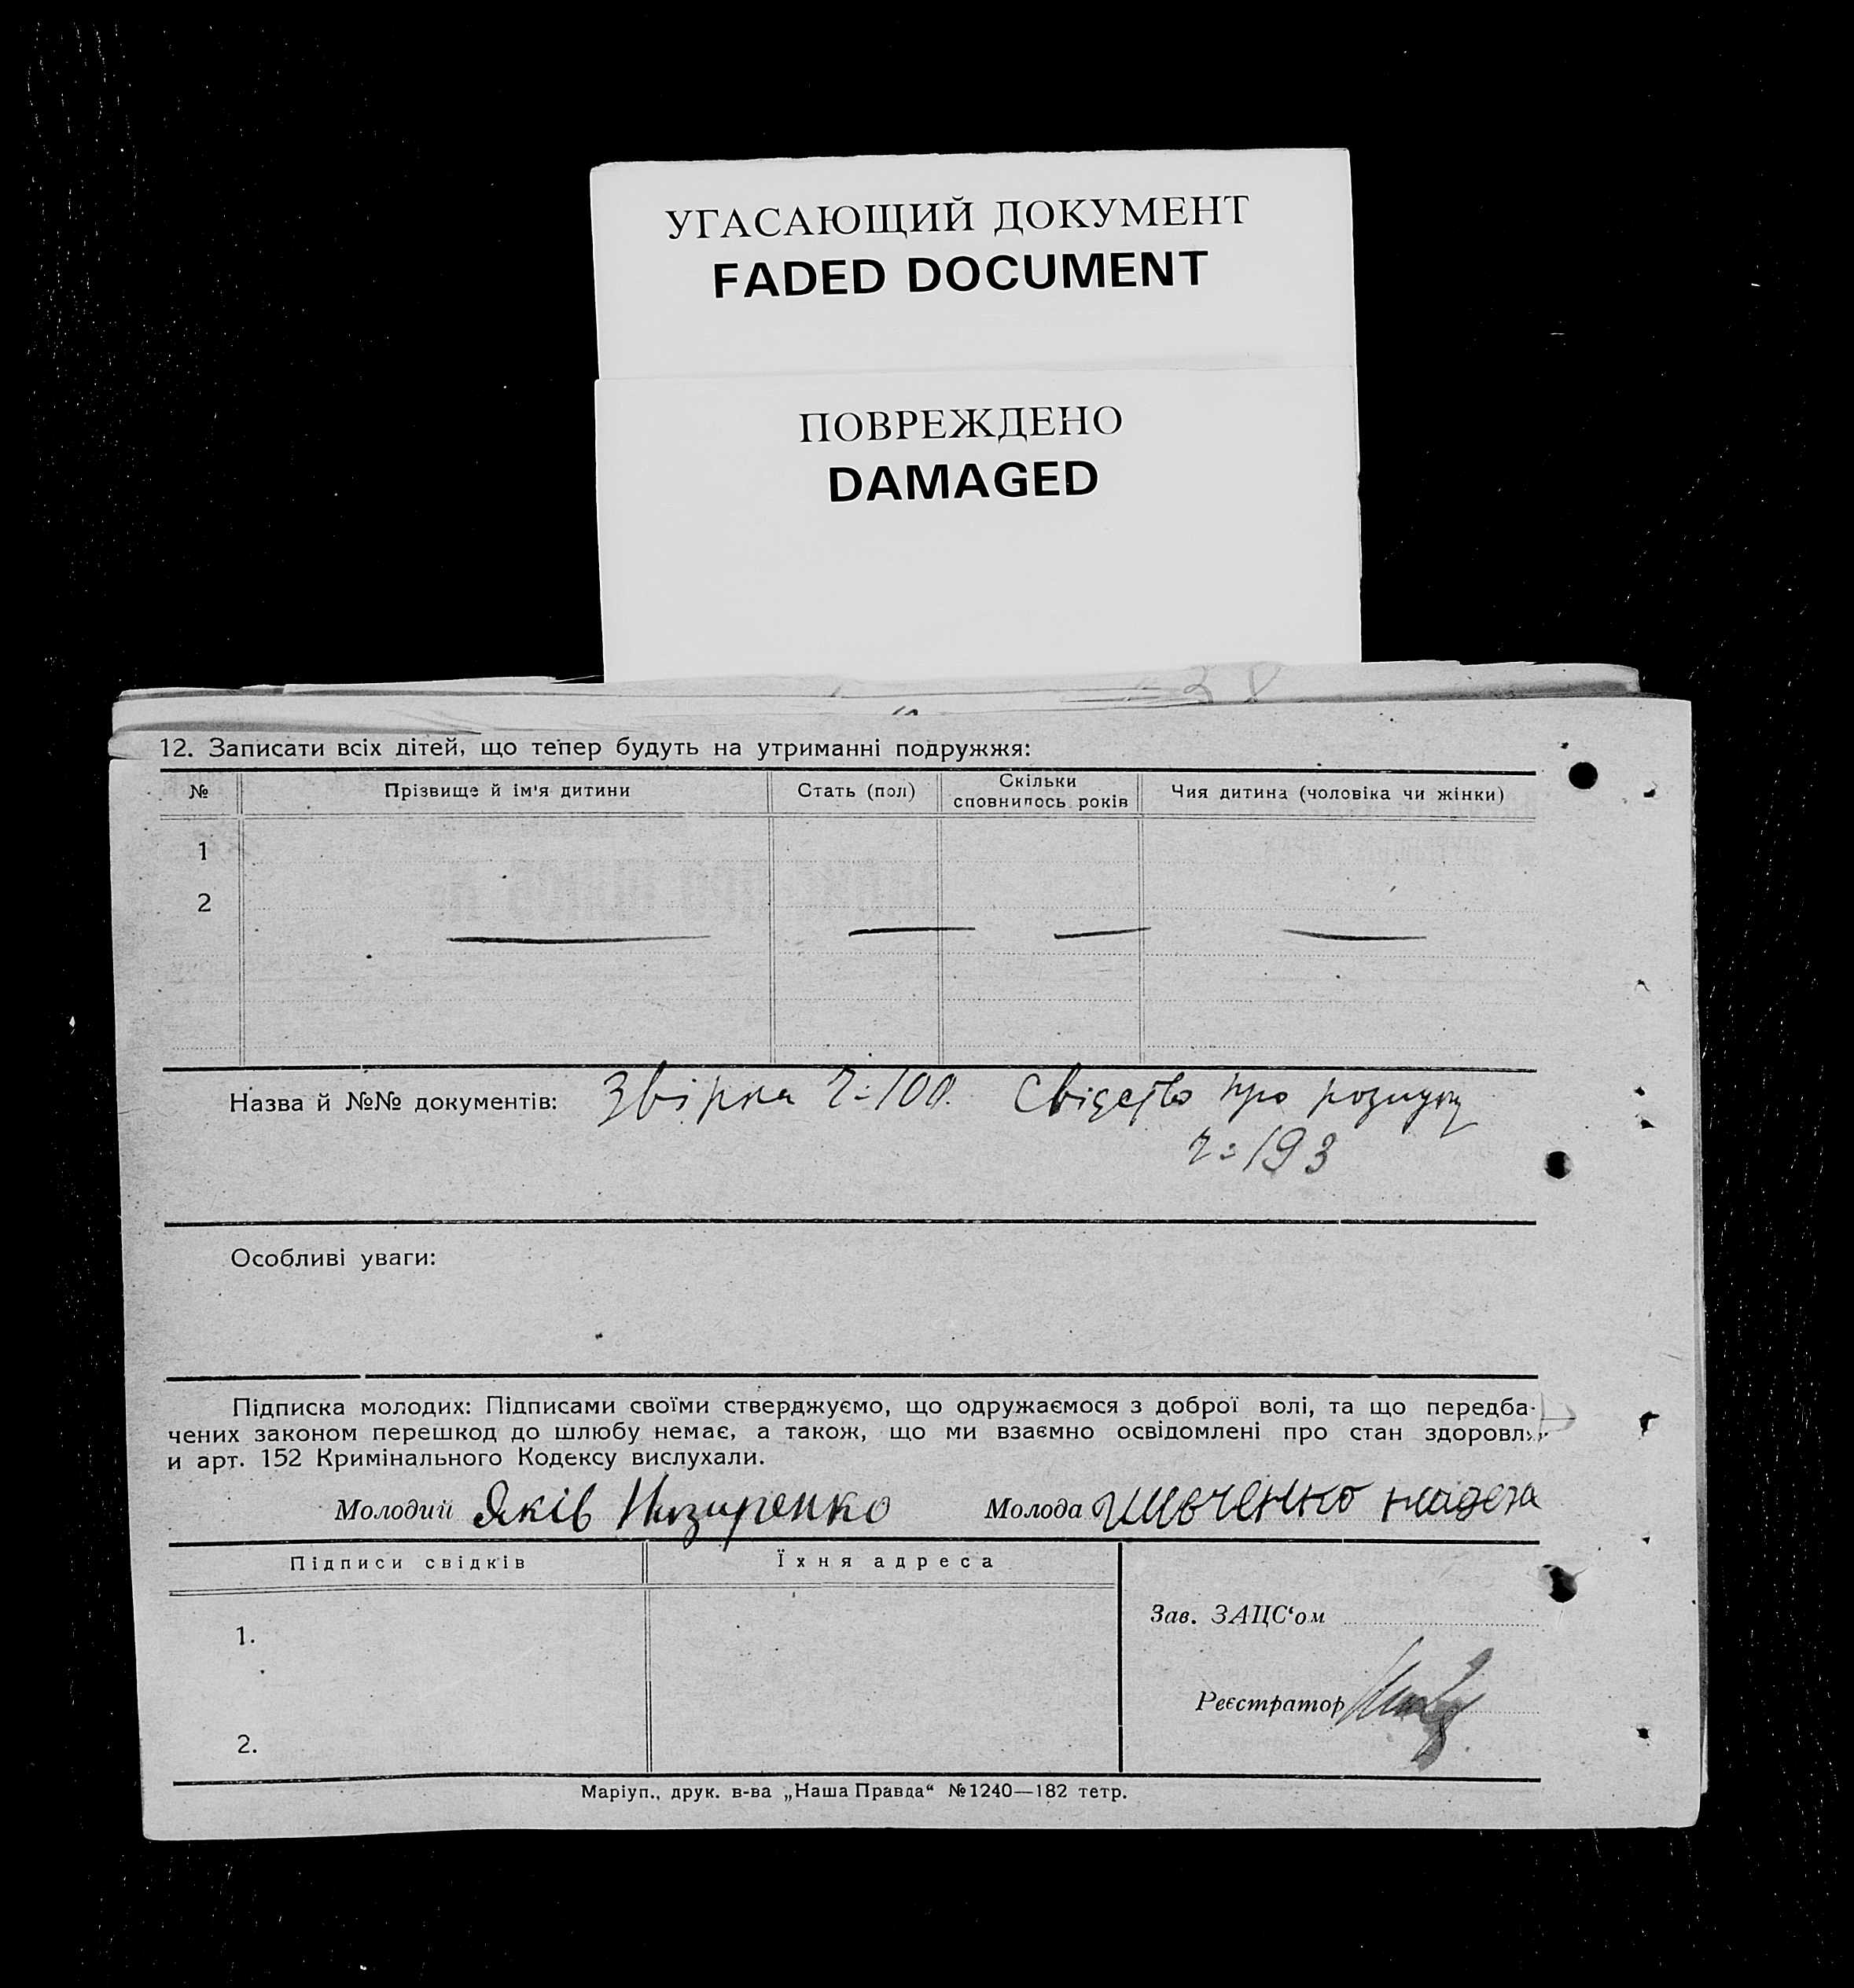 УГАСАЮЩИЙ ДОКУМЕНТ
FADED DOCUMENT
ПОВРЕЖДЕНО
DAMAGED
12. Записати всіх дітей, що тепер будуть на утриманні подружжя:
№ Прізвище й ім'я дитини Стать (пол) Скільки сповнилось років Чия дитина (чоловіка чи жінки)
1
2
Назва й №№ документів: Звірка ч=100. Свідство про розлуку
ч=193
Особливі уваги:
Підписка молодих: Підписами своїми стверджуємо, що одружаємося з доброї волі, та що передба-
чених законом перешкод до шлюбу немає, а також, що ми взаємно освідомлені про стан здоровля
и арт. 152 Кримінального Кодексу вислухали.
Молодий Яків Назаренко Молода Шевченко
Підписи свідків Їхня адреса
Зав. ЗАЦС‘ом
1.
Реєстратор
2.
Маріуп., друк. в-ва „Наша Правда“ №1240—182 тетр.